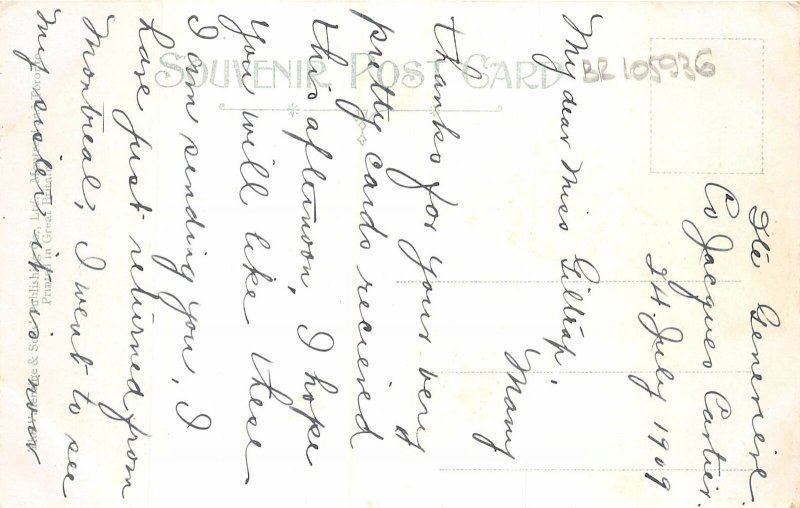 Ste Genevieve
Co Jacques Cartier.
24. July 1909
My dear Miss Giltrap,
Many
thanks for your very
pretty cards recieved
this afternoon, I hope
you will like these
I am sending you, I
have just returned from
Montreal; I went to see
my sister, it is now
SOUVENIR POST CARD
BR 105936
Printed in Great Britain